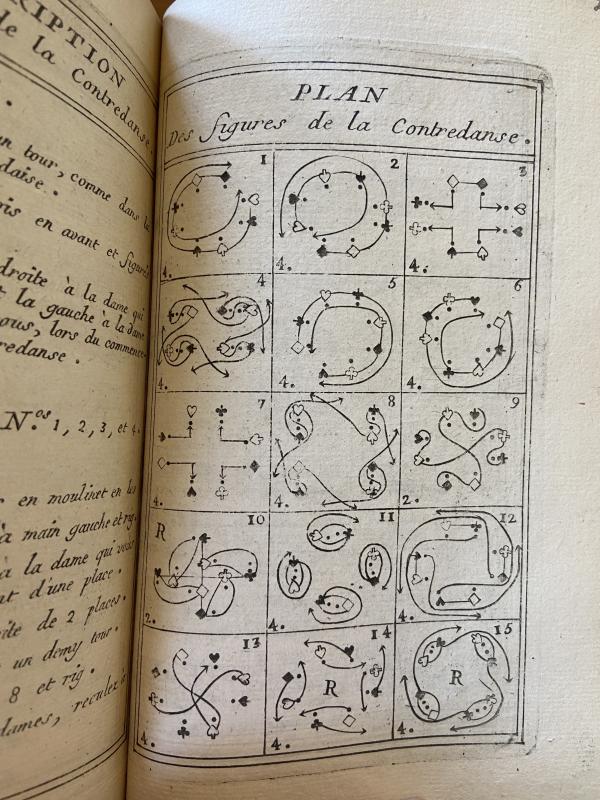 RIPTION
de la Contredanse.
un tour, comme dans la
daise.
ris en avant et figuris
droite à la dame qui
t la gauche à la dame
ous, lors du commence-
redanse.
N.os 1, 2, 3, et 4.
r en moulinet en les
à main gauche et rig.
à la dame qui vous
nt d'une place.
ite de 2 places.
un demy tour.
8 et rig.
dames, reculez à
PLAN
Des figures de la Contredanse.
1 2 3
4. 4. 4.
4 5 6
4. 4. 4.
7 8 9
4. 4. 2.
10 11 12
R
2. 4. 4.
13 14 15
R R
4. 4. 4.